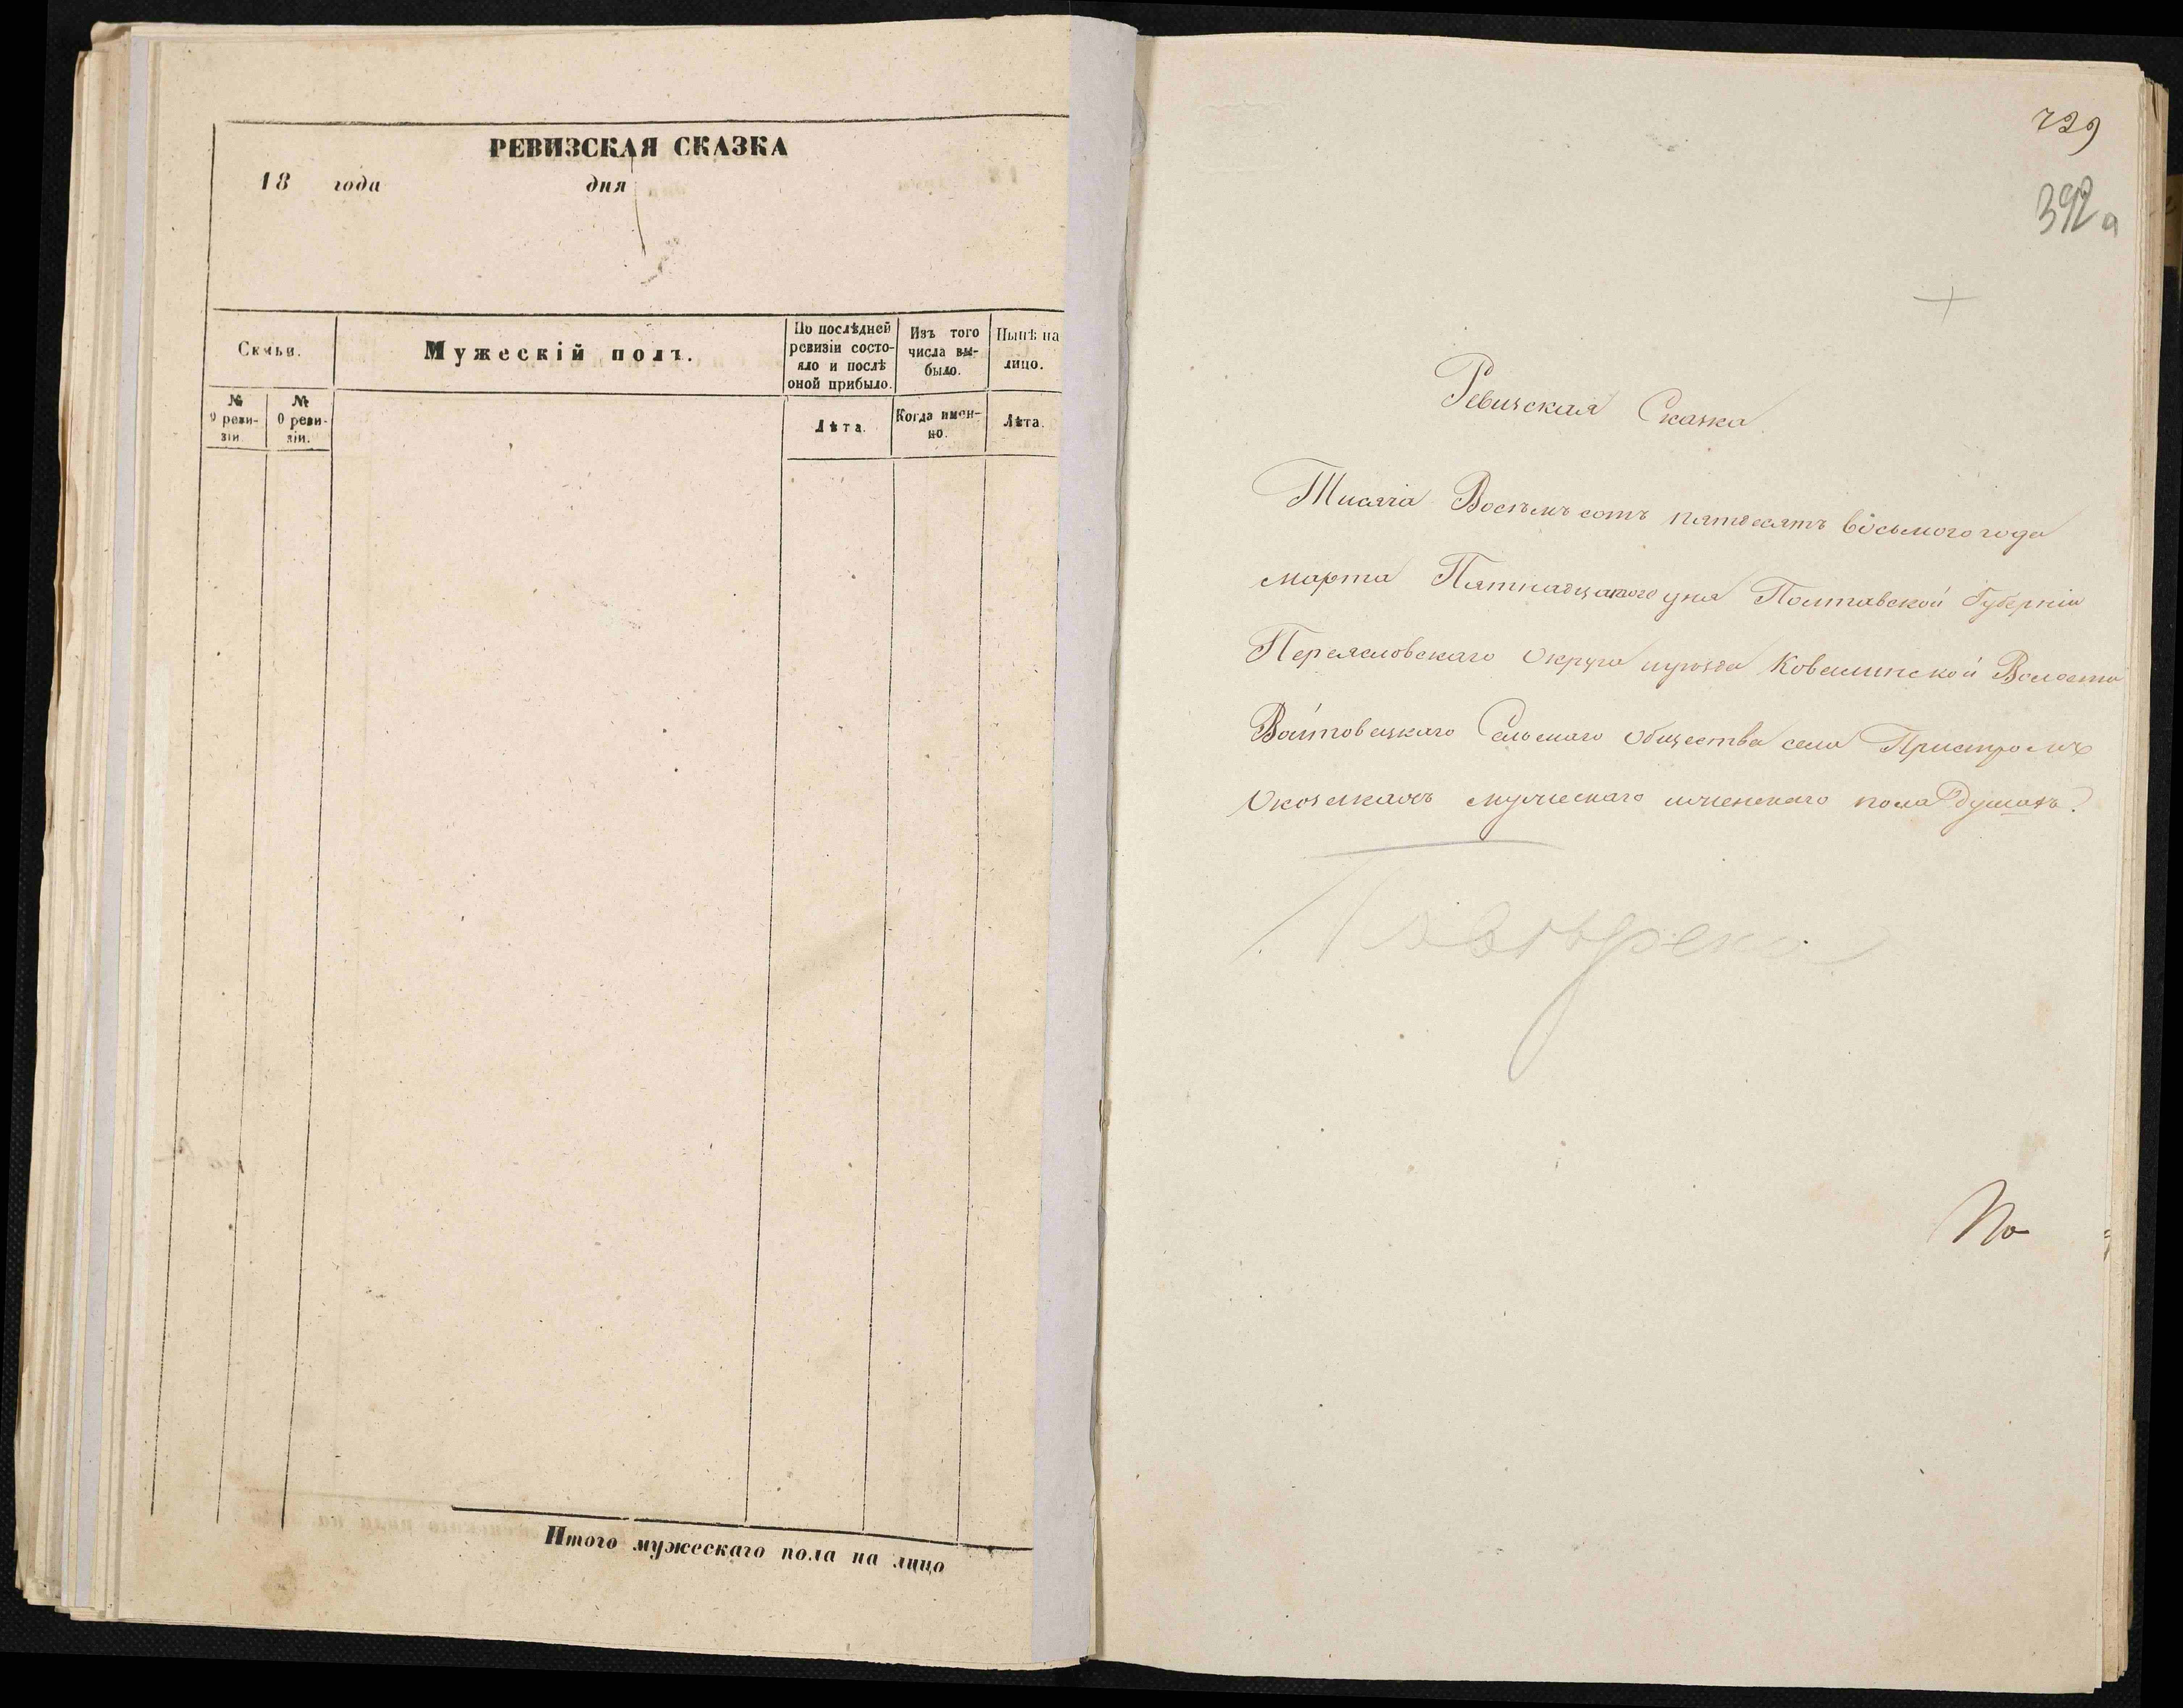 РЕВИЗСКАЯ СКАЗКА
18 года дня
Семьи.
Мужескій полъ.
По послѣдней ревизіи состояло и послѣ оной прибыло.
Изъ того числа выбыло.
Нынѣ на лицо.
№ 9 ревизіи
№ 0 ревизіи.
Лѣта.
Когда именно.
Лѣта.
Итого мужескаго пола на лицо
729
392а
Ревизская Сказка
Тисяча Восемъ сотъ пятдесятъ восьмого года
марта Пятнадцатого дня Полтавской Губерніи
Переясловскаго Округа иуезда Ковалинской Волости
Войтовецкаго Сельскаго Общества села Пристромъ
Окозакахъ мужескаго иженскаго пола душахъ.
По